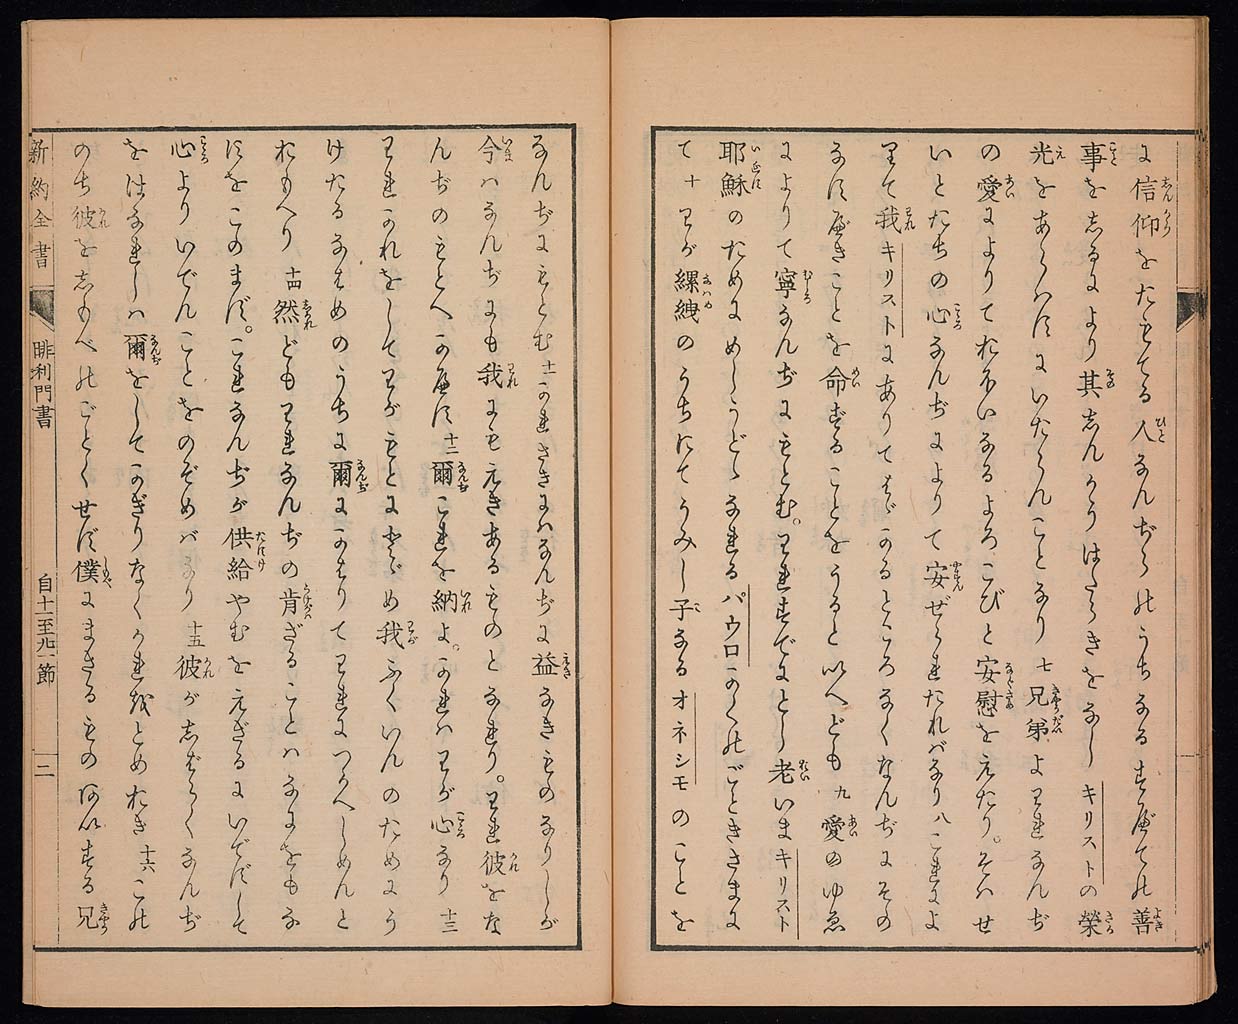 に信仰をたもてる人なんぢらのうちなるすべての善
事をしるにより其しんかうはたらきをなしキリストの榮
光をあらはすにいたらんことなり七兄弟よわれなんぢ
の愛によりておほいなるよろこびと安慰をえたり。そはせ
いとたちの心なんぢによりて安ぜられたればなり八これによ
りて我キリストにありてはゞかるところなくなんぢにその
なすべきことを命ずることをうると以へども九愛のゆゑ
によりて寧なんぢにもとむ。われすでにとし老いまキリスト
耶穌のためにめしうどゝなれるパウロかくのごときさまに
て十わが縲絏のうちにてうみし子なるオネシモのことを
なんぢにもとむ十一かれさきにはなんぢに益なきものなりしが
今はなんぢにも我にもえきあるものとなれり。われ彼をな
んぢのもとへかへす十二爾これを納よ。かれはわが心なり十三
われかれをしてわがもとにとゞめ我ふくいんのためにう
けたるなはめのうちに爾にかはりてわれにつかへしめんと
おもへり十四然どもわれなんぢの肯ざることはなにをもな
すをこのまず。これなんぢが供給やむをえざるにいでずして
心よりいでんことをのぞめばなり十五彼がしばらくなんぢ
をはなれしは爾をしてかぎりなくかれをとめおき十六この
のち彼をしもべのごとくせず僕にまさるもの𛀂いする兄
新約全書
腓利門書
自十一至九一節
二